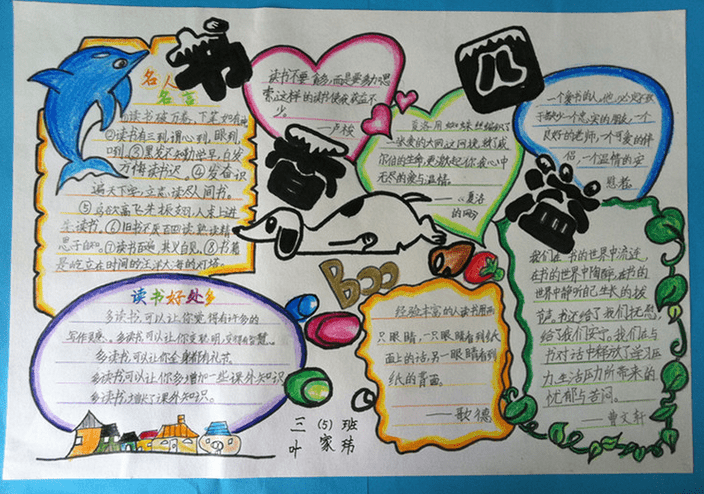 书
香
四
溢
名人
名言
①读书破万卷，下笔如有神
②读书有三到，谓心到，眼到
口到。③黑发不知勤学早，白发
方悔读书迟。④发奋识
遍天下字，立志读尽人间书。
⑤鸟欲高飞先振翅，人求上进
先读书。⑥旧书不厌百回读，熟读精
思子自知。⑦读书百遍，其义自见。⑧书籍
是屹立在时间的汪洋大海的灯塔。
读书不要贪多，而是要多加思
索，这样的读书使我获益不
少。
——卢梭
夏洛用蜘蛛丝编织了
一张爱的大网，这网挽救了威
尔伯的生命，更激起你我心中
无尽的爱与温情。
——《夏洛
的网》
一个爱书的人，他必定不致
于缺少一个忠实的朋友，一个
良好的老师，一个可爱的伴
侣，一个温情的安
慰者。
Boo
读书好处多
多读书，可以让你觉得有许多的
写作灵感。多读书，可以让你变聪明，变得有智慧
多读书，可以让你全身都有礼节
多读书可以让你多增加一些课外知识
多读书，增长了课外知识。
经验丰富的人读书用两
只眼睛，一只眼睛看到纸
面上的话，另一眼睛看到
纸的背面。
——歌德
我们在书的世界中流连，
在书的世界中陶醉，在书的
世界中静听自己生长的拔
节声。书还给了我们抚慰，
给了我们安宁。我们在与
书对话中释放了学习压
力、生活压力所带来的
忧郁与苦闷。
——曹文轩
三（5）班
叶家玮